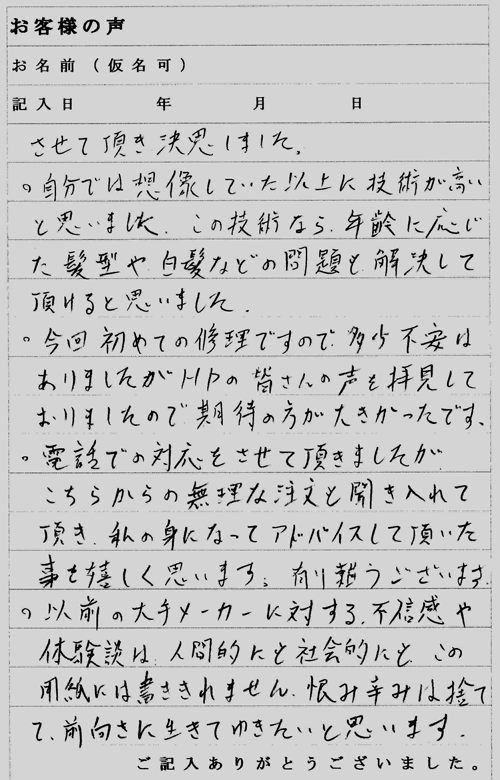 お客様の声
お名前（仮名可）
記入日　年　月　日
させて頂き決思しました。
。自分では想像していた以上に技術が高い
と思いました。この技術なら、年齢に応じ
た髪型や白髪などの問題も解決して
頂けると思いました。
。今回初めての修理ですので多少不安は
ありましたがHPの皆さんの声を拝見して
おりましたので期待の方が大きかったです。
。電話での対応をさせて頂きましたが
こちらからの無理な注文も聞き入れて
頂き、私の身になってアドバイスして頂いた
事を嬉しく思います。有り難うございます。
。以前の大手メーカーに対する、不信感や
体験談は、人間的にも社会的にも、この
用紙には書ききれません。恨み辛みは捨て
て、前向きに生きてゆきたいと思います。
ご記入ありがとうございました。